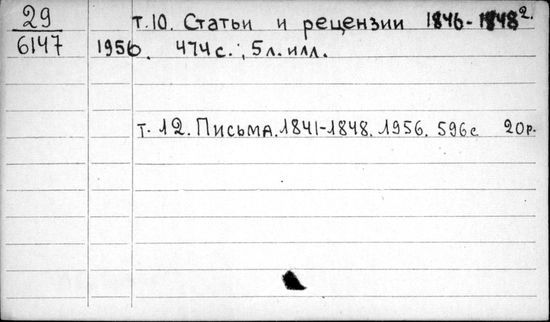 29 т.10. Статьи и рецензии 1846-1848г.
6147 1956. 474с., 5л. илл.
т. 12. Письма. 1841-1848. 1956. 596с 20р.